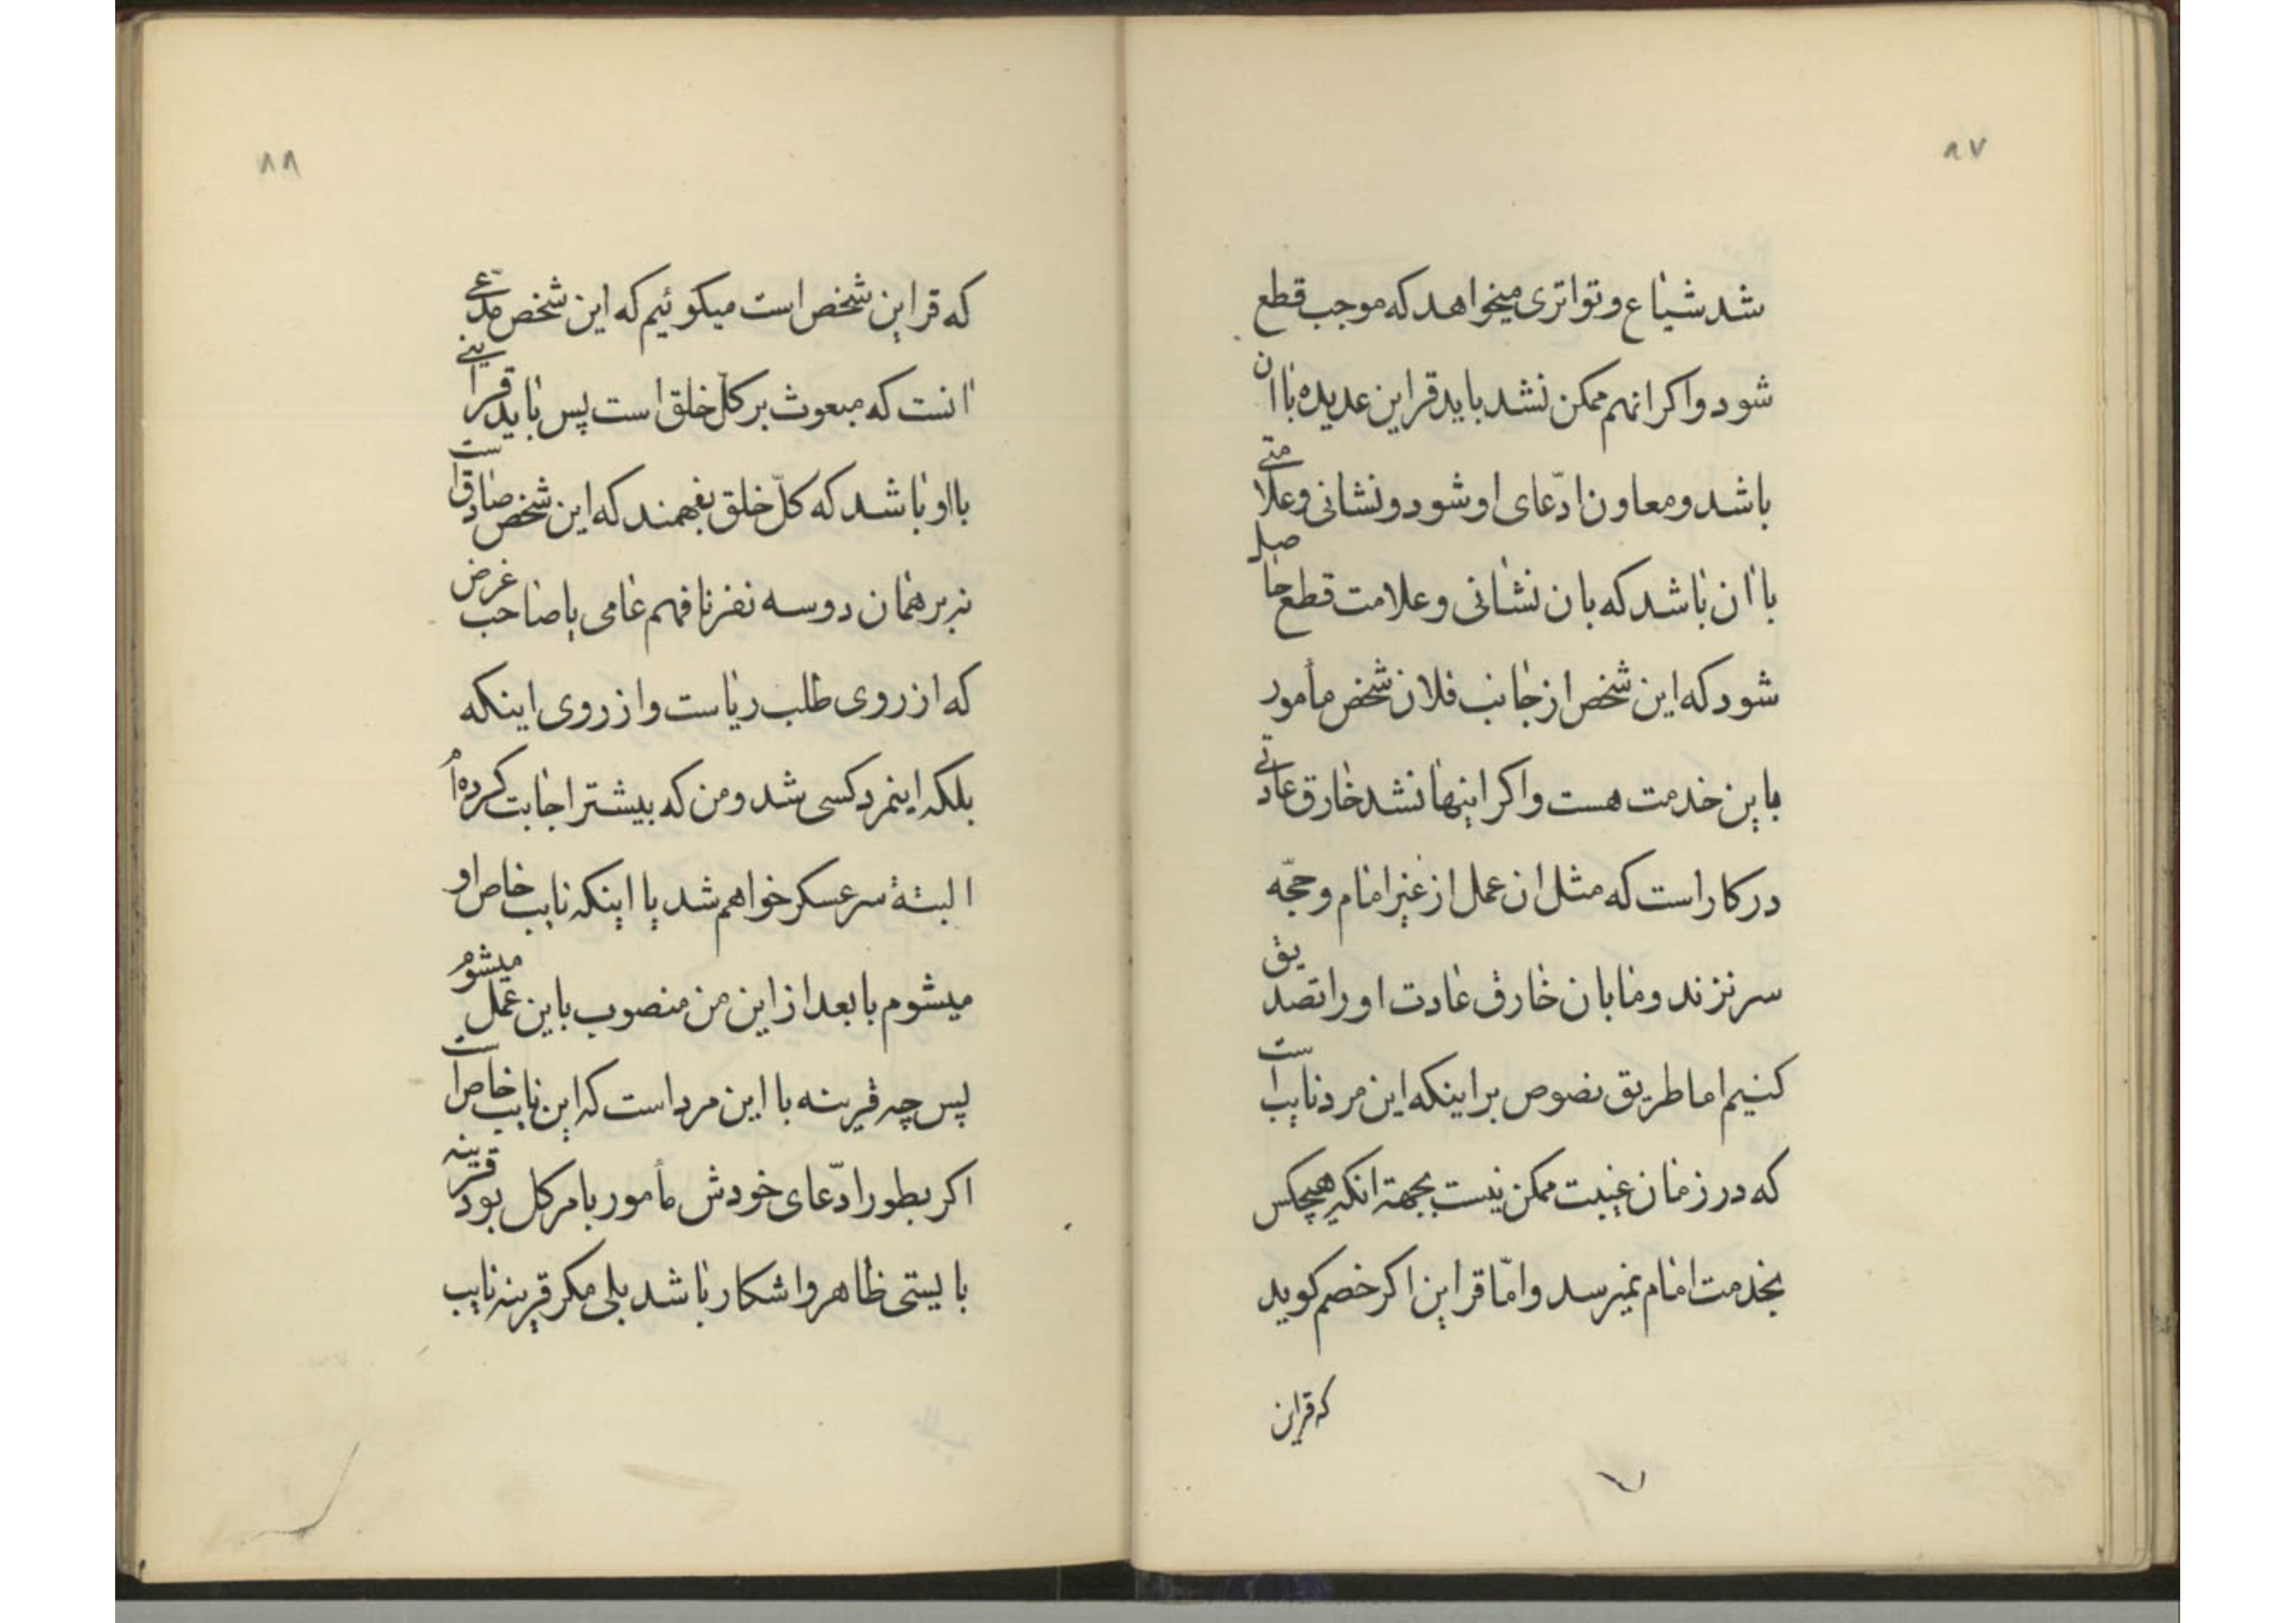 ۸۷
شد شیاع و تواتری میخواهد که موجب قطع
شود و اکر انهم ممکن نشد باید قراین عدیده با ان
باشد و معاون ادّعای او شود و نشانی و علامتی
با ان باشد که بان نشانی و علامت قطع حاصل
شود که این شخص از جانب فلان شخص مأمور
باین خدمت هست و اکر اینها نشد خارق عادتی
در کار است که مثل ان عمل از غیر امام و حجّه
سر نزند و ما بان خارق عادت او را تصدیق
کنیم اما طریق نصوص بر اینکه این مرد نایب است
که در زمان غیبت ممکن نیست بجهة انکه هیچکس
بخدمت امام نمیرسد و امّا قراین اکر خصم کوید
که قراین
۸۸
که قراین شخص است میکوئیم که این شخص مدّعی
انست که مبعوث بر کلّ خلق است پس باید قراینی
با او باشد که کلّ خلق بفهمند که این شخص صادق است
نه بر همان دو سه نفر نافهم عامی یا صاحب غرض
که از روی طلب ریاست و از روی اینکه
بلکه اینمرد کسی شد و من که بیشتر اجابت کرده‌ام
البته سرعسکر خواهم شد یا اینکه نایب خاص او
میشوم یا بعد از این من منصوب باین عمل میشوم
پس چه قرینه با این مرد است که این نایب خاص است
اکر بطور ادّعای خودش مأمور بامر کل بود قرینه
بایستی ظاهر و اشکار باشد بلی مکر قرینه نایب